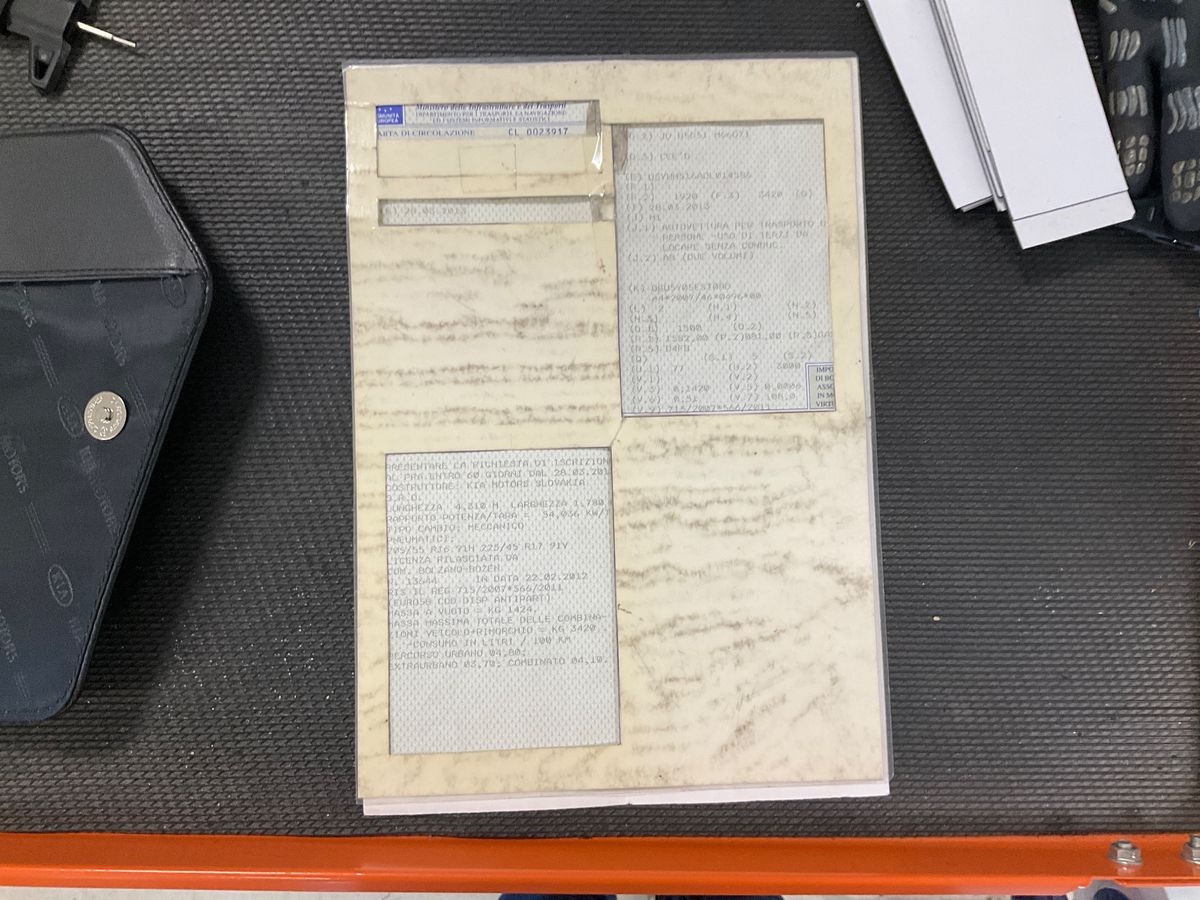 Ministero delle Infrastrutture e dei Trasporti
DIPARTIMENTO PER I TRASPORTI, LA NAVIGAZIONE
ED I SISTEMI INFORMATIVI E STATISTICI
OMUNITÀ
EUROPEA
ARTA DI CIRCOLAZIONE CL 0023917
28.03.2013
(D.3) CEE'D
(F.1)
(F.2) 1920 (F.3) 3420 (G)
(I) 28.03.2013
(J) M1
(J.1) AUTOVETTURA PER TRASPORTO D
PERSONE -USO DI TERZI DA
LOCARE SENZA CONDUC.
(J.2) AB (DUE VOLUMI)
(K)
e4*2007/46*0496*00
(L) 2 (N.1) (N.2)
(N.3) (N.4) (N.5)
(O.1) 1500 (O.2)
(P.1) 1582,00 (P.2)081,00 (P.3)GA
(P.5) D4FB
(Q) (S.1) 5 (S.2)
(U.1) 77 (U.2) 3000
(V.1) (V.2)
(V.3) 0,1420 (V.5) 0,0006
(V.6) 0,51 (V.7) 108,0
(V.9) 715/2007*566/2011
IMPO
DI BO
ASSO
IN M
VIRTU
PRESENTARE LA RICHIESTA DI ISCRIZION
AL PRA ENTRO 60 GIORNI DAL 28.03.201
COSTRUTTORE: KIA MOTORS SLOVAKIA
S.R.O.
LUNGHEZZA 4,310 M LARGHEZZA 1,780
RAPPORTO POTENZA/TARA = 54,036 KW/T
TIPO CAMBIO: MECCANICO
PNEUMATICI:
205/55 R16 91H 225/45 R17 91V
LICENZA RILASCIATA DA
COM. BOLZANO-BOZEN
N. 13644 IN DATA 22.02.2012
RIS IL REG 715/2007*566/2011
(EURO5B COD DISP ANTIPART)
MASSA A VUOTO = KG 1424.
MASSA MASSIMA TOTALE DELLE COMBINA-
ZIONI VEICOLO+RIMORCHIO = KG 3420
-CONSUMO IN LITRI / 100 KM
PERCORSO URBANO 04,80;
EXTRAURBANO 03,70; COMBINATO 04,10.
KIA
KIA MOTORS